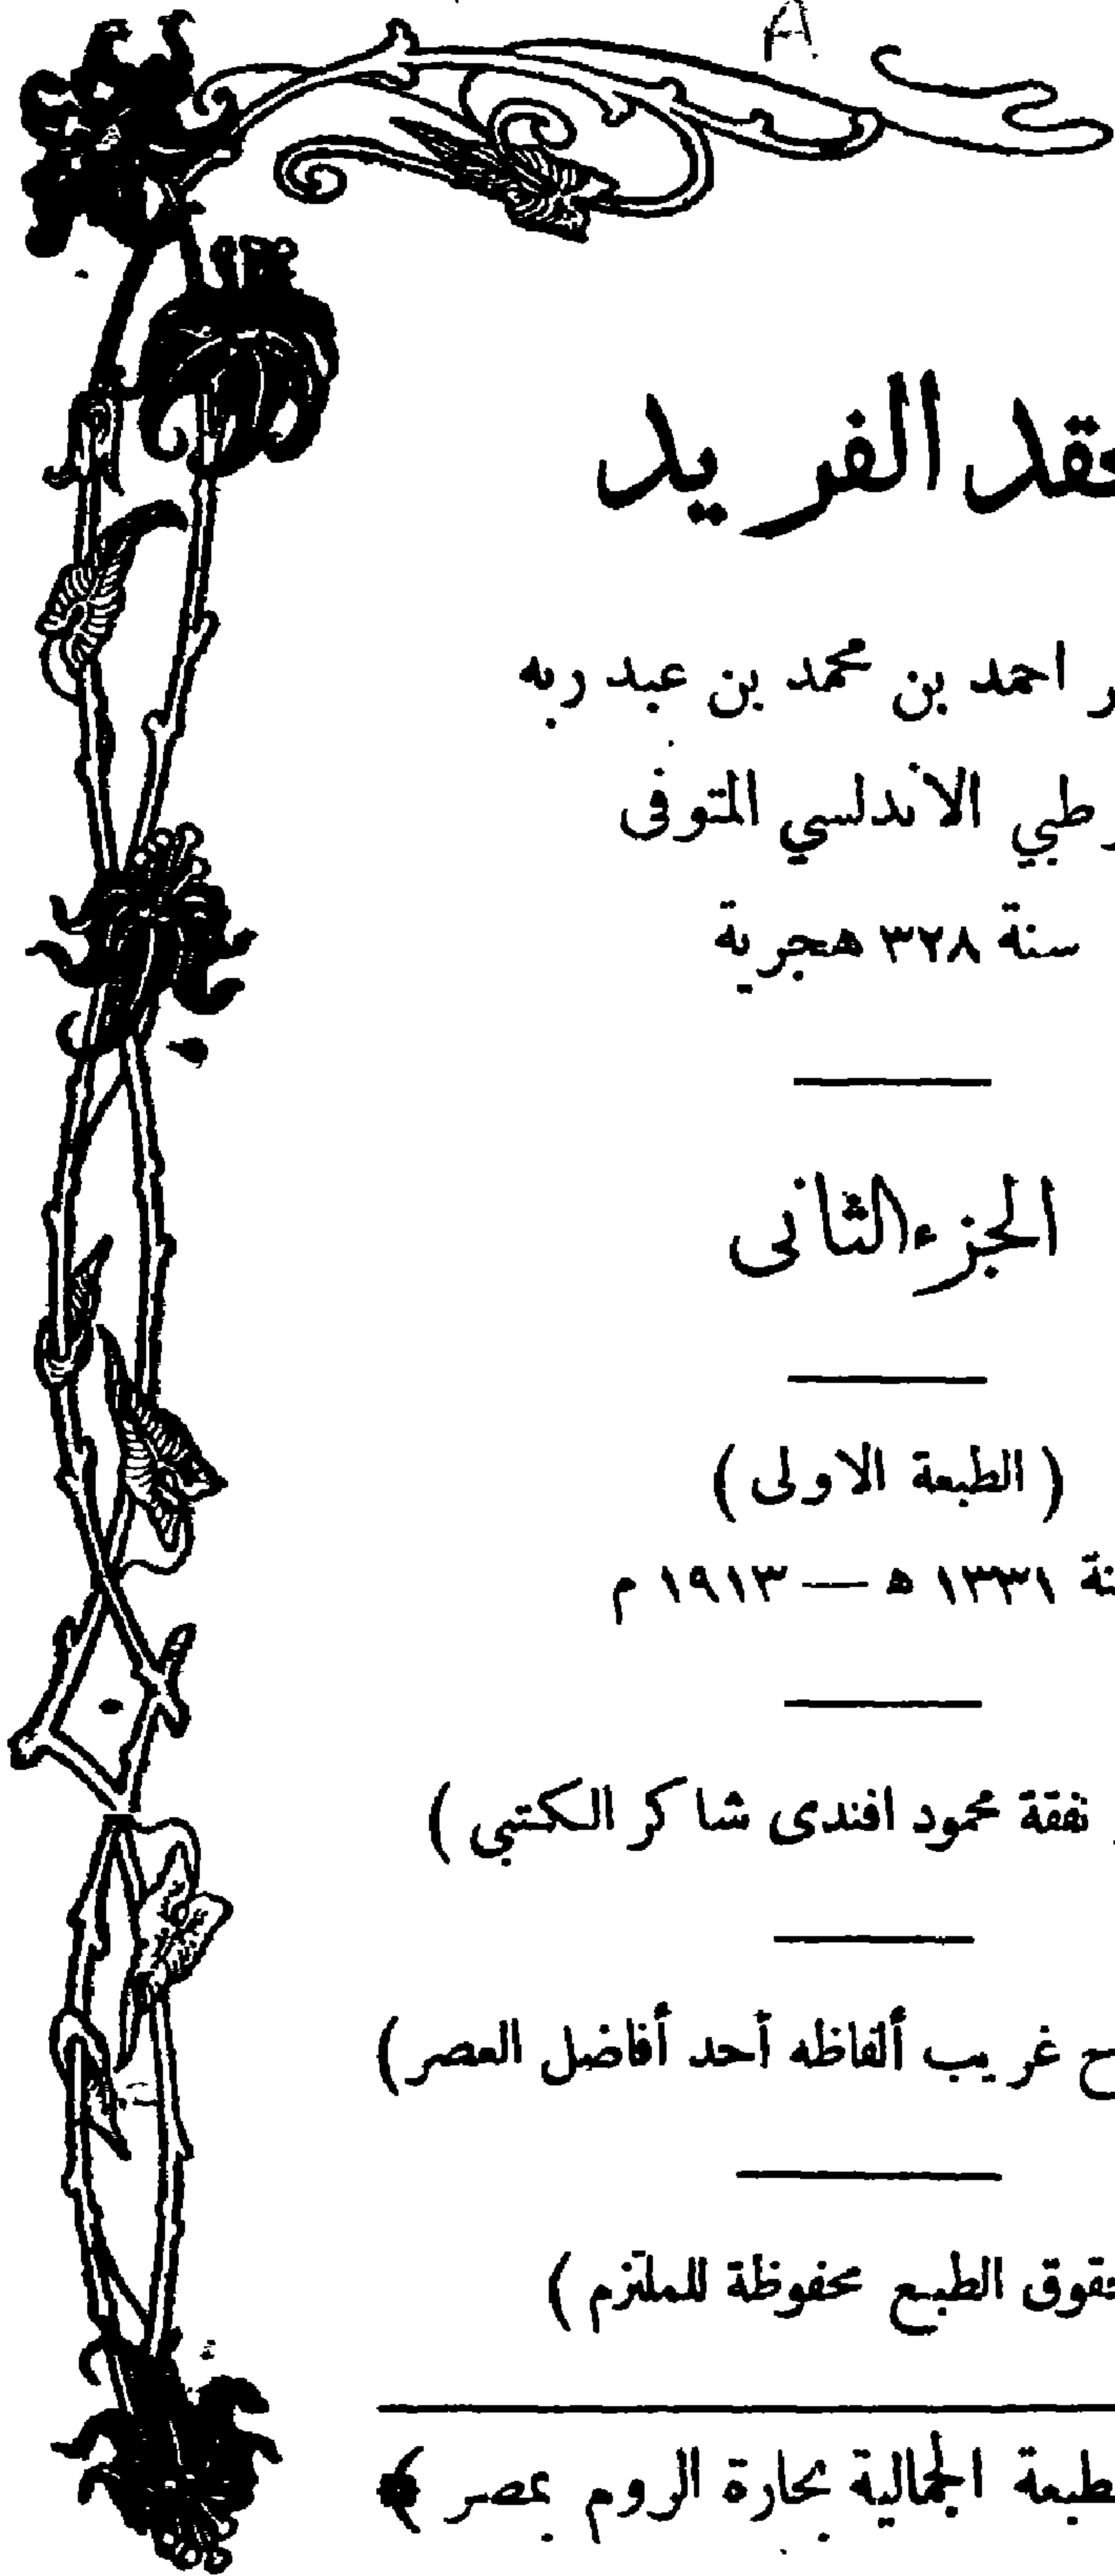 عقد الفريد
ر احمد بن محمد بن عبد ربه
رطبي الاندلسي المتوفى
سنة ٣٢٨ هجرية
الجزء الثانى
( الطبعة الاولى )
نة ١٣٣١ ه — ١٩١٣ م
نفقة محمود افندى شاكر الكتبي )
ح غريب ألفاظه أحد أفاضل العصر)
حقوق الطبع محفوظة للملتزم )
طبعة الجمالية بحارة الروم بمصر ﴾